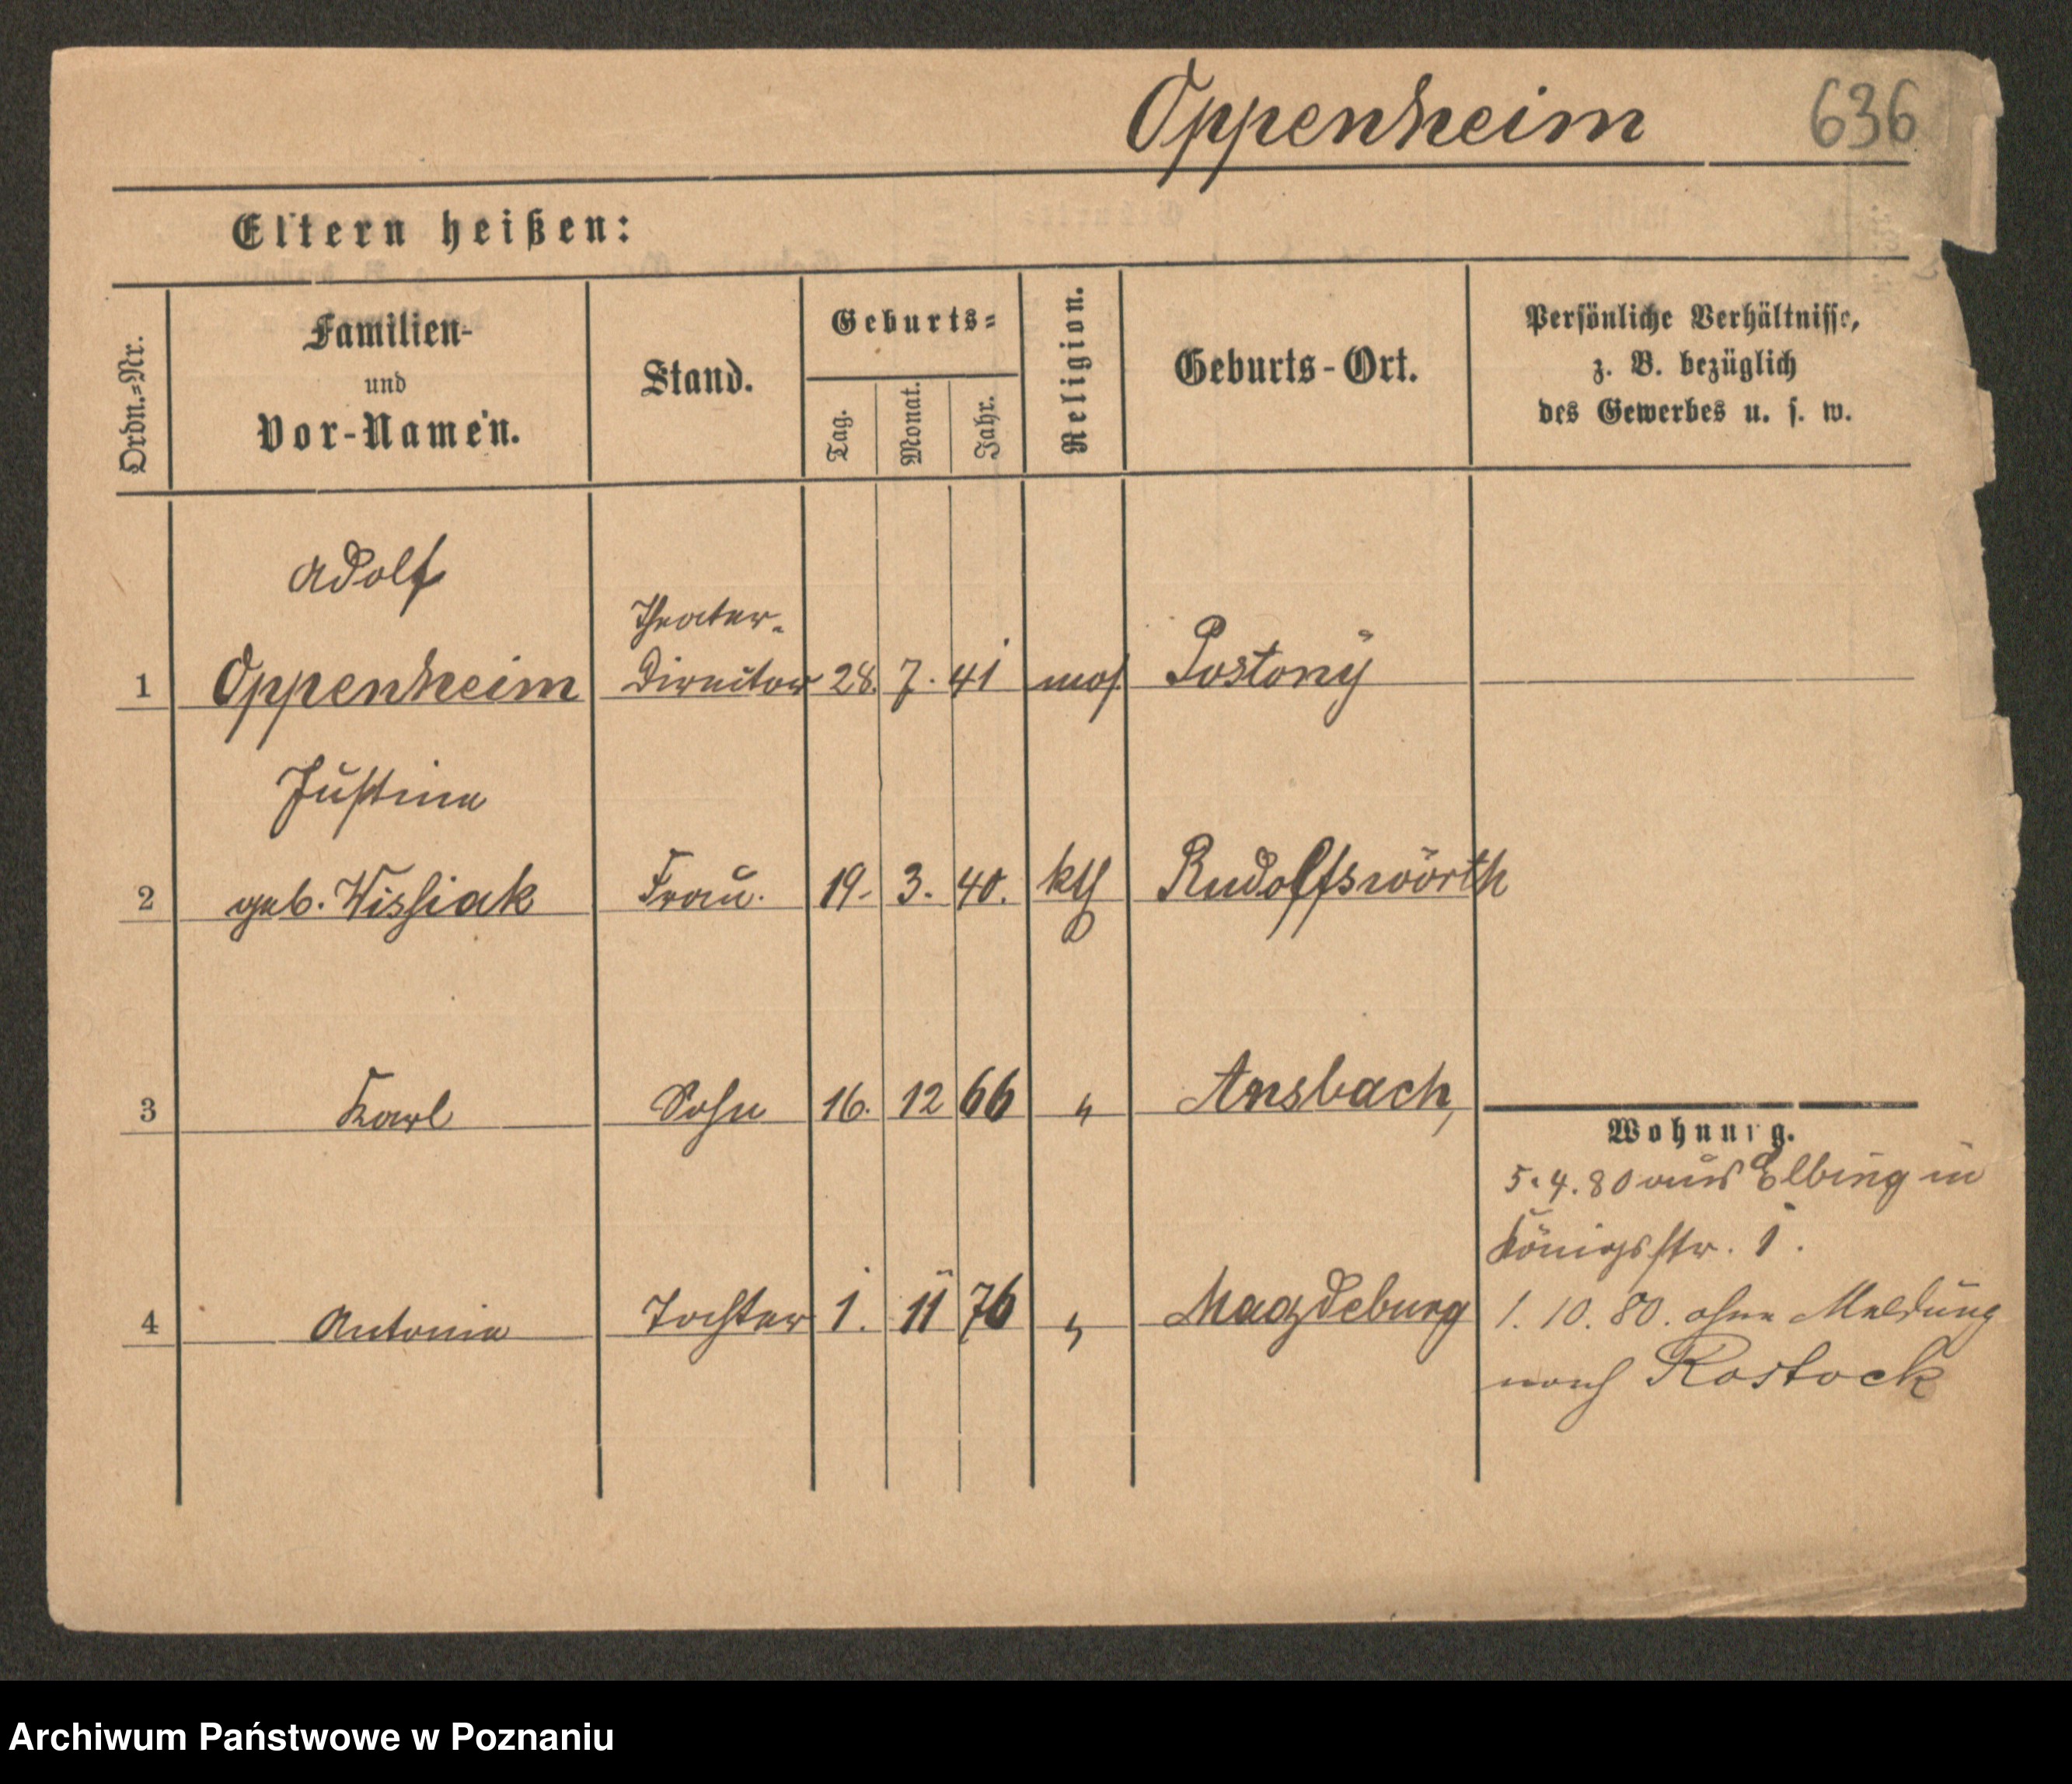 Oppenheim 636
Eltern heißen:
Ordn.=Nr.
Familien-
und
Vor-Namen.
Stand.
Geburts=
Tag.
Monat.
Jahr.
Religion.
Geburts-Ort.
Persönliche Verhältnisse,
z. B. bezüglich
des Gewerbes u. s. w.
Adolf
Theater-
1 Oppenheim Director 28. 7. 41 mos. Postony
Justine
2 geb. Wissiak Frau. 19. 3. 40. kth Rudolfswörth
3 Karl Sohn 16. 12 66 " Ansbach,
4 Antonie Tochter 1. 11 76 " Magdeburg
Wohnung.
5.4.80 aus Elbing in
Königsstr. 1.
1. 10. 80. ohne Meldung
nach Rostock
Archiwum Państwowe w Poznaniu